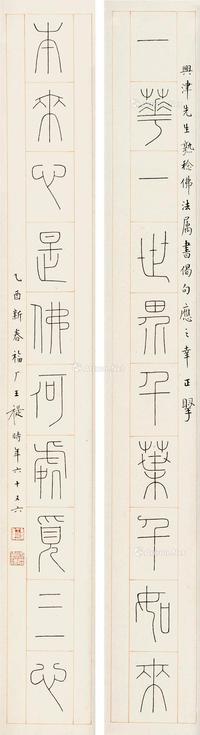 興津先生熟稔佛法属書偈句應之幸正擘
一華一世界千葉千如來
本來心是佛何處覓三心
乙酉新春福厂王禔時年六十又六